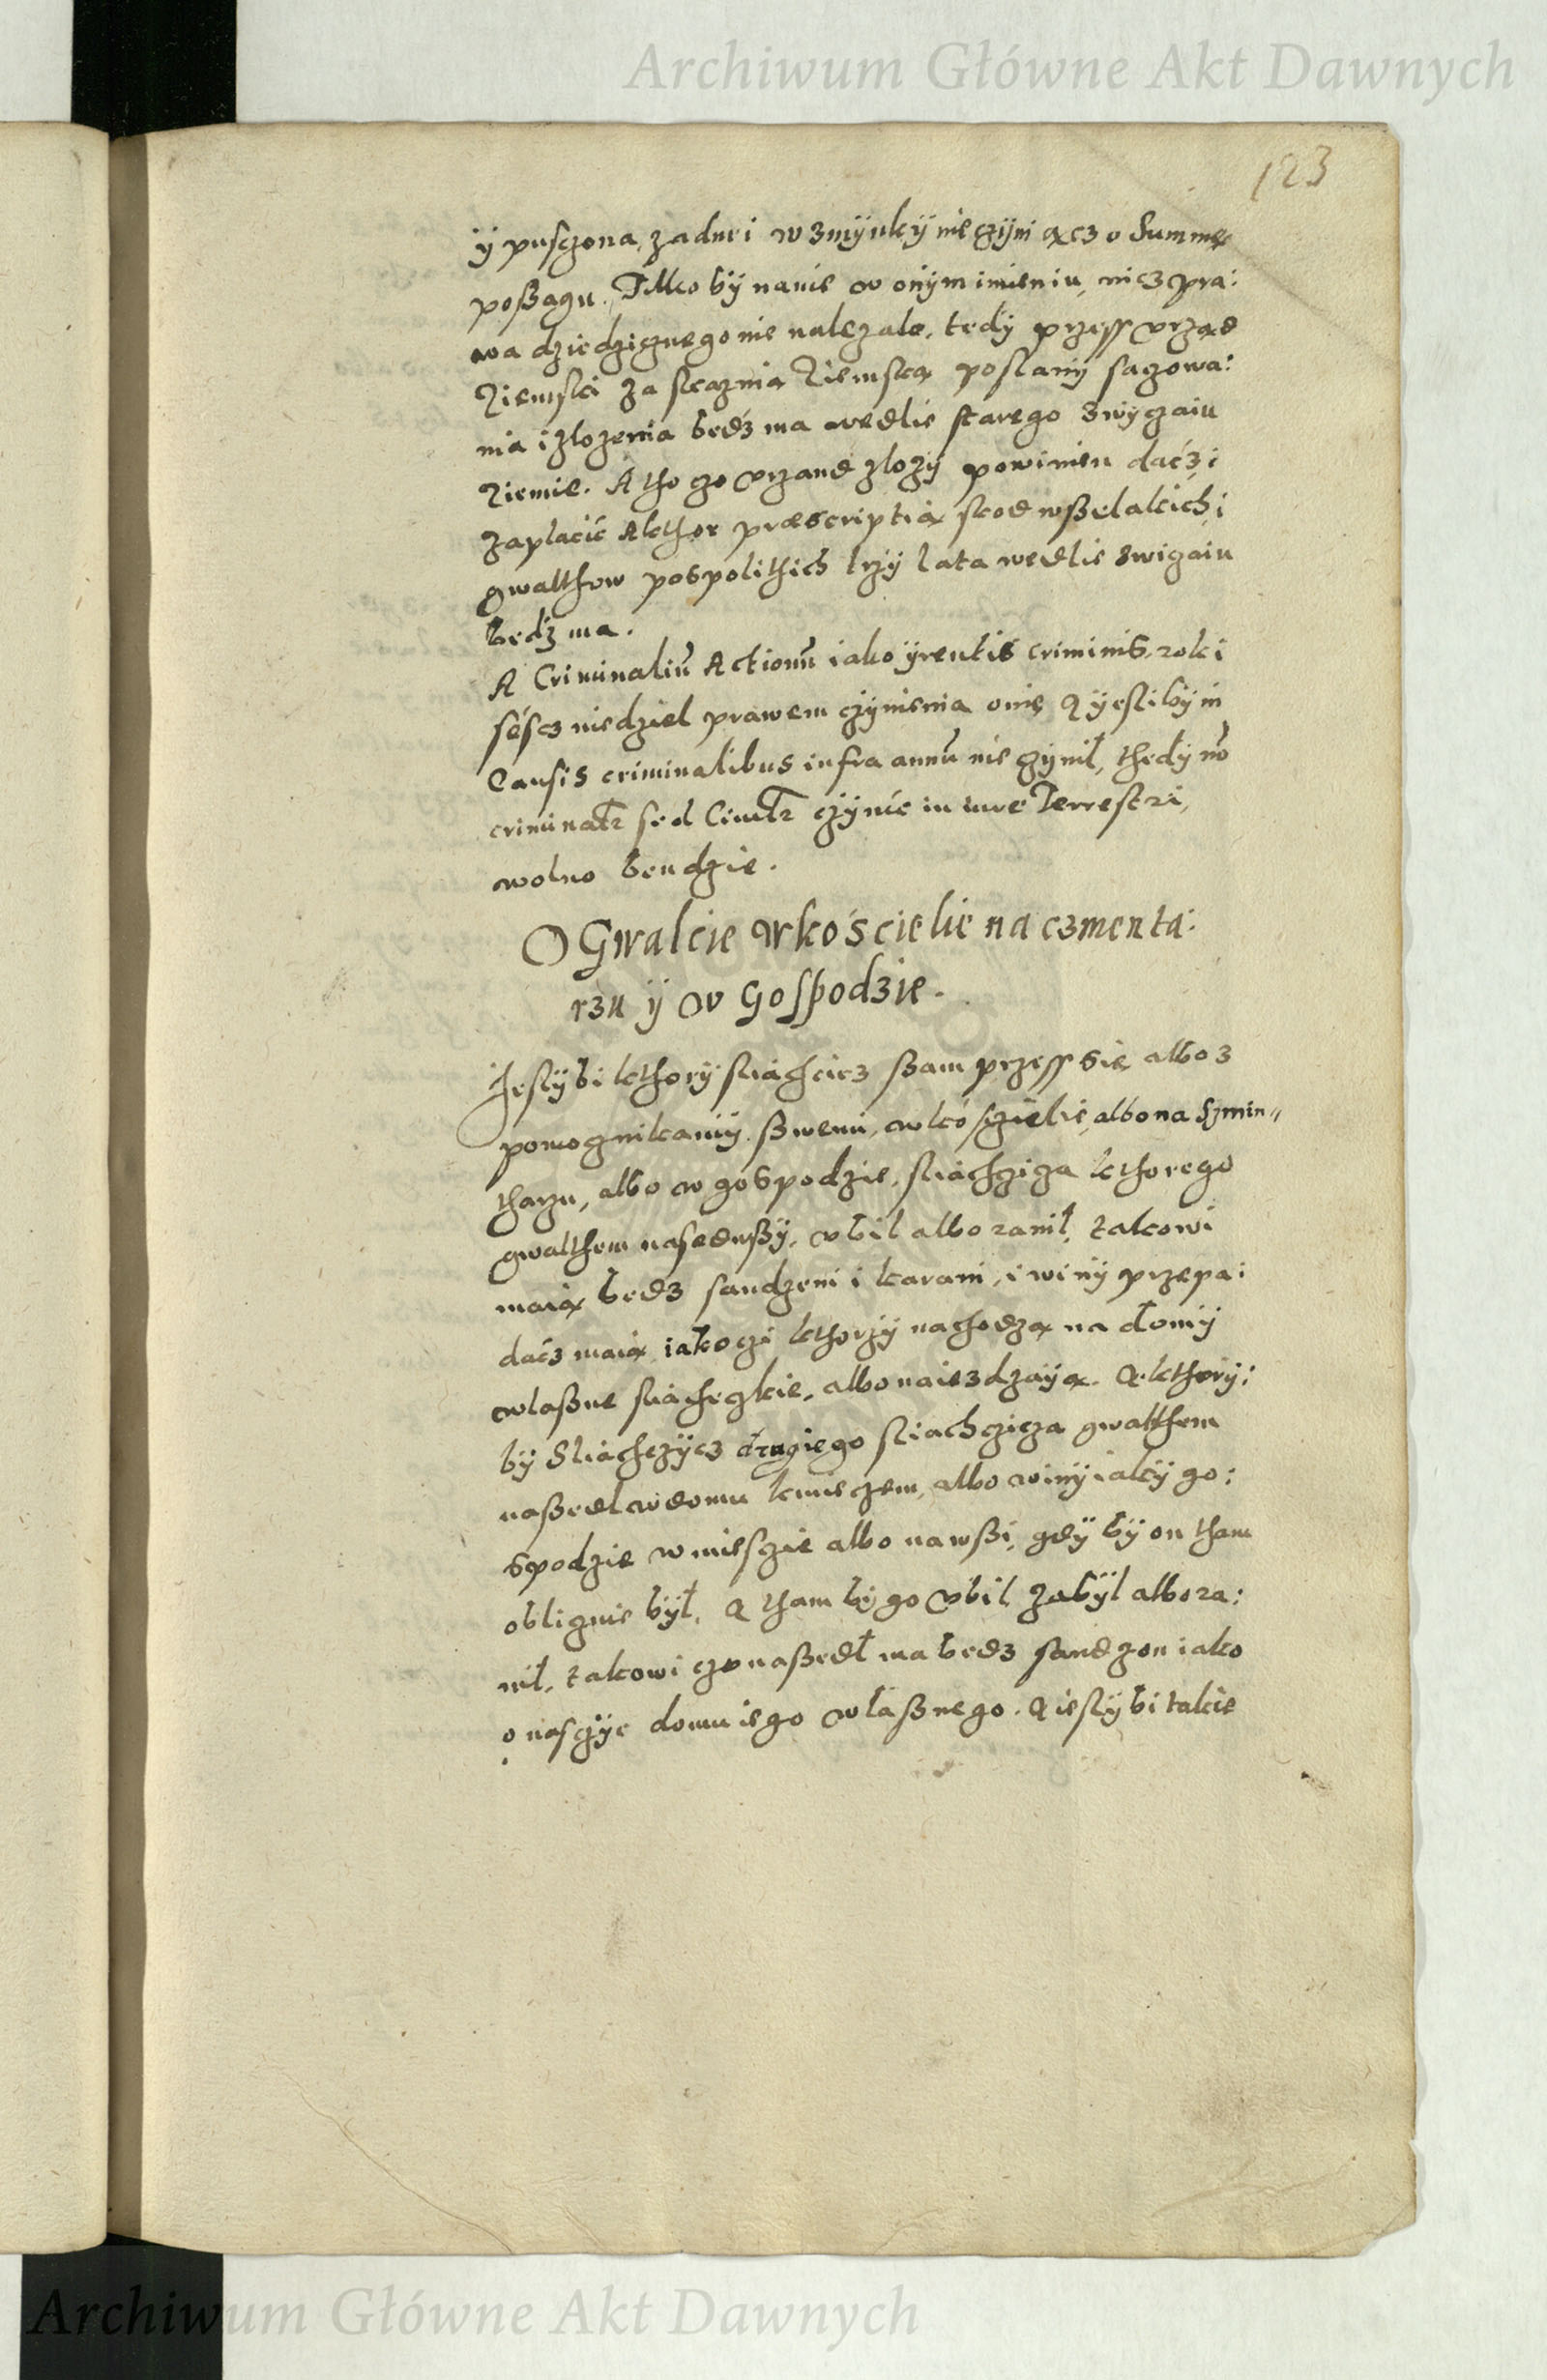 Archiwum Główne Akt Dawnych
123
ÿ pusczona, zadnei w zmÿnkÿ nie czÿni ącz o Summę
poßagu. Tilko bÿ nanie w onÿm imieniu, nicz pra:
wa dziedzicznego nie nalezalo. tedÿ przess vrząd
Ziemski za skaznią Ziemską poslanÿ saczowa:
nia i zlozenia bedz ma wedlie starego zwÿczaiu
Ziemie. A tho czo vrzand zlozÿ powinien daćz i
zaplacić Akthor præscriptią skod wßelakich i
gwalthow pospolithich trzÿ lata wedlie zwiczaiu
bedz ma.
A Criminaliū Actionū iako ÿ rentis criminis, rok i
sésc niedziel prawem czÿnienia onie A ÿesli bÿ in
Causis criminalibus infra annū nie czÿnił, thedÿ nō
criminalr sed Civilr czÿnić in iure Terrestri,
wolno bendzie.
O Gwalcie w kościelie na czmenta:
rzu ÿ w Gospodzie.
Jeslÿ bi kthorÿ sliachcicz ßam przess sie albo z
pomocznikamÿ ßwemi, w kósczielie, albo na Szmin„
tharzu, albo w gospodzie, sliachczicza kthorego
gwalthem nasedwßÿ, vbil albo ranił, takowi
maią bedz sandzeni i karani, i winÿ przepa:
daćz maią iako czi kthorzÿ nachodzą na domÿ
wlaßne sliacheczkie, albo naiezdzaÿą. A kthorÿ:
bÿ Sliachczÿcz drugiego sliachczicza gwalthem
naßedl w domu kmieczem, albo w inÿ iakÿ go:
spodzie w miesczie albo na wßi, gdÿ bÿ on tham
oblicznie bÿł, A tham bÿ go vbil zabÿl albo ra:
nił, takowi czo naßedł ma bedz sandzon iako
o nasczÿe domu iego własznego. A ieslÿ bi takie
Archiwum Główne Akt Dawnych